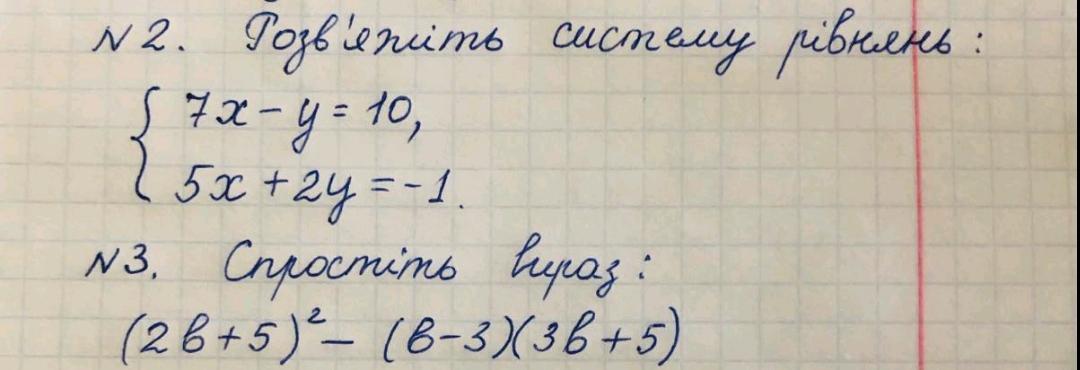 №2. Розв'яжіть систему рівнянь:
{ 7x - y = 10,
5x + 2y = -1.
№3. Спростіть вираз:
(2в + 5)² - (в - 3)(3в + 5)